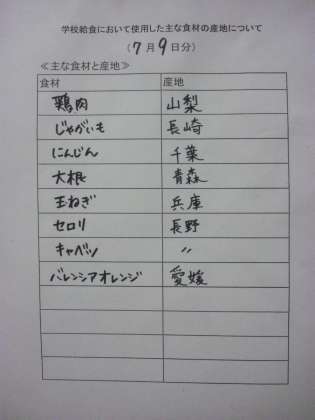 学校給食において使用した主な食材の産地について
(7月9日分)
≪主な食材と産地≫
食材 産地
鶏肉 山梨
じゃがいも 長崎
にんじん 千葉
大根 青森
玉ねぎ 兵庫
セロリ 長野
キャベツ 〃
バレンシアオレンジ 愛媛